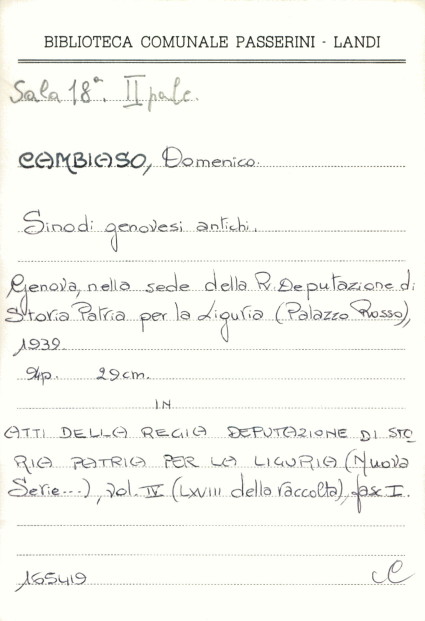 BIBLIOTECA COMUNALE PASSERINI - LANDI
Sala 18ª. II palc.
CAMBIASO, Domenico.
Sinodi genovesi antichi.
Genova, nella sede della R. Deputazione di
Storia Patria per la Liguria (Palazzo Rosso),
1939.
94p. 29cm.
IN
ATTI DELLA REGIA DEPUTAZIONE DI STO
RIA PATRIA PER LA LIGURIA (Nuova
Serie...), vol. IV (LXVIII della raccolta), fasc I.
165419